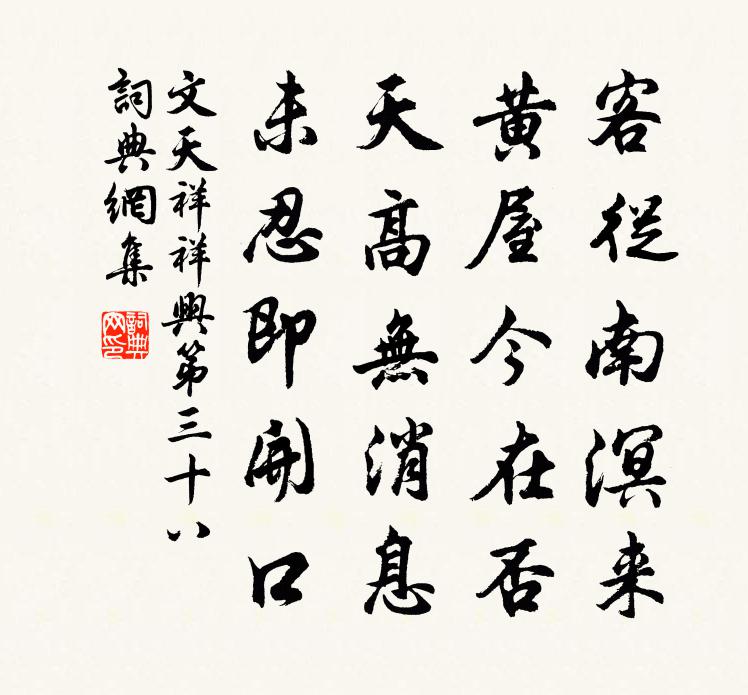 客從南溟来
黄屋今在否
天高無消息
未忍即開口
文天祥祥興第三十八
詞典網集
詞典網印